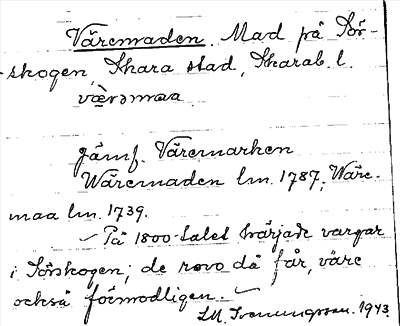 Väremaden. Mad på Sör-
skogen, Skara stad, Skarab. l.
væ̀rəmaa
Jämf. Väremarken
Wäremaden lm. 1787; Wäre-
maa lm. 1739.
✓ På 1800-talet härjade vargar
i Sörskogen; de revo då får, väre
också förmodligen. ✓
I. M. Svenungsson. 1943